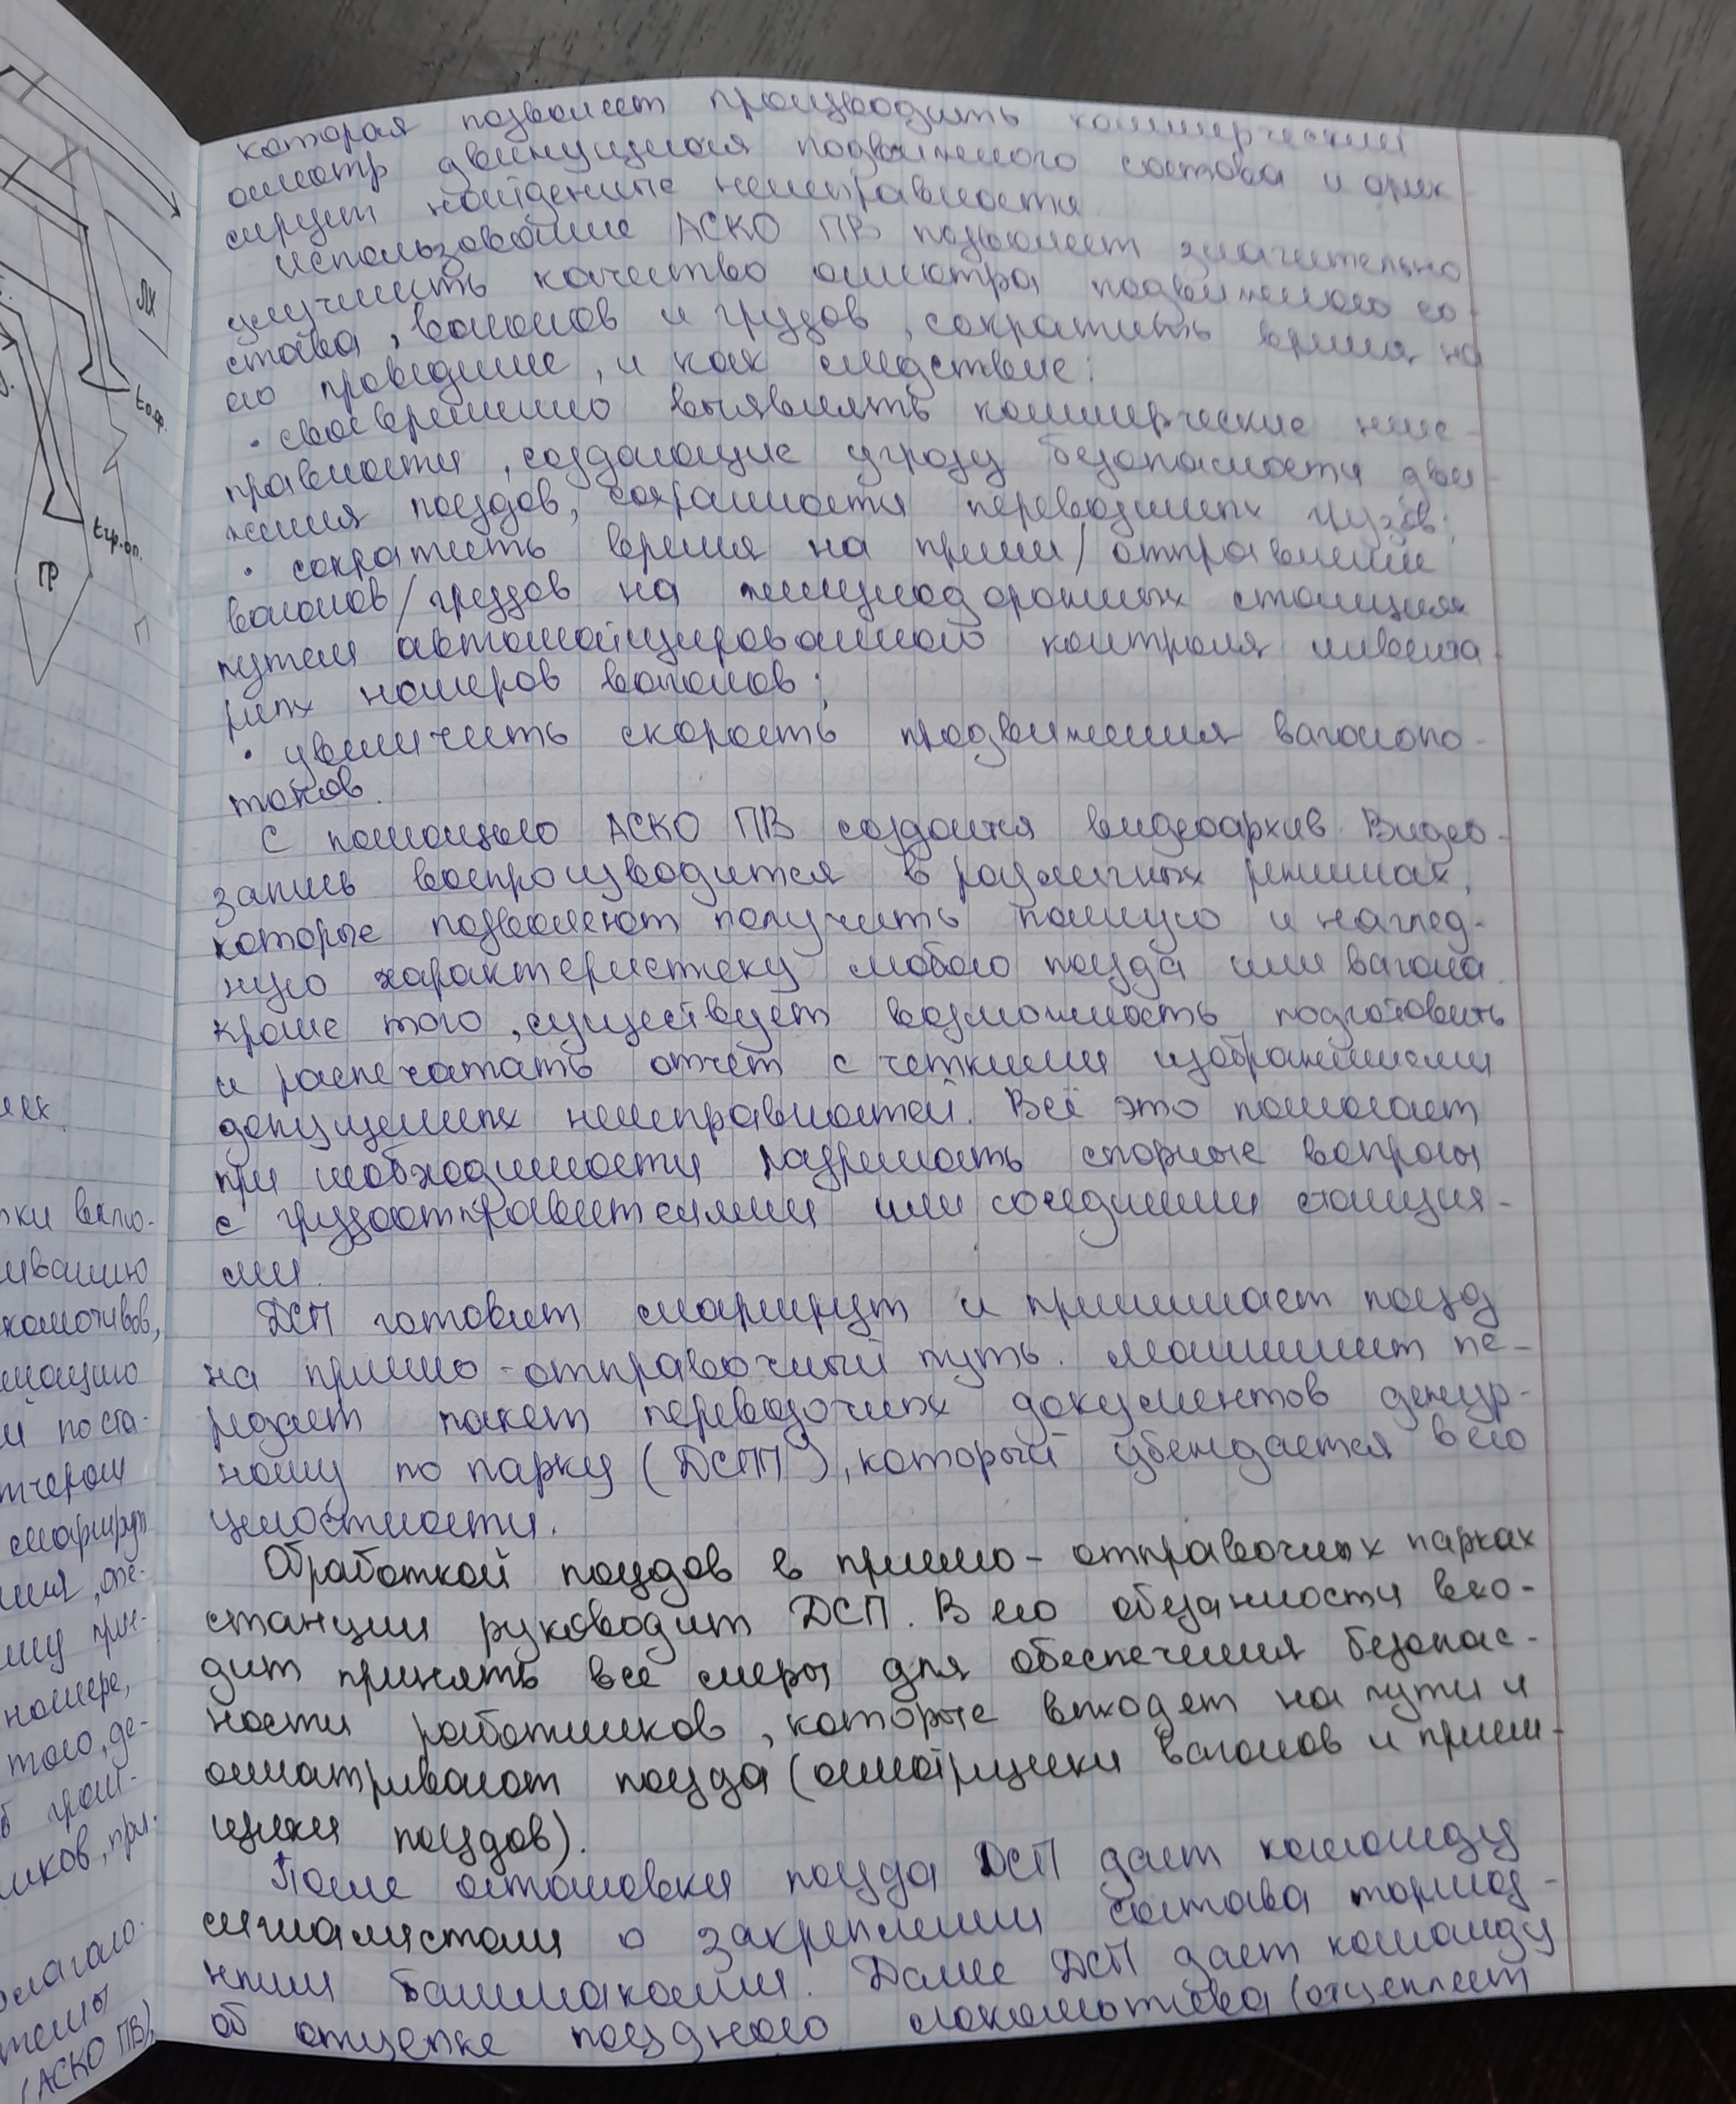 которая позволяет производить коммерческий
осмотр движущегося подвижного состава и фик
сирует найденные неисправности
Использование АСКО ПВ позволяет значительно
улучшить качество осмотра подвижного со-
става, вагонов и грузов, сократить время на
его проведение, и как следствие:
· своевременно выявлять коммерческие неис-
правности, создающие угрозу безопасности дви-
жения поездов, сохранности перевозимых грузов;
· сократить время на прием/отправление
вагонов/грузов на железнодорожных станциях
путем автоматизированного контроля инвента-
рных номеров вагонов;
· увеличить скорость продвижения вагонопо-
токов.
С помощью АСКО ПВ создается видеоархив. Видео-
запись воспроизводится в различных режимах,
которые позволяют получить полную и нагляд-
ную характеристику любого поезда или вагона.
Кроме того, существует возможность подготовить
и распечатать отчет с четкими изображениями
допущенных неисправностей. Всё это помогает
при необходимости разрешать спорные вопросы
с грузоотправителями или соседними станция-
ми.
ДСП готовит маршрут и принимает поезд
на приемо-отправочный путь. Машинист пе-
редает пакет перевозочных документов дежур-
ному по парку (ДСПП), который убеждается в его
целостности.
Обработкой поездов в приемо-отправочных парках
станции руководит ДСП. В его обязанности вхо-
дит принять все меры для обеспечения безопас-
ности работников, которые выходят на пути и
осматривают поезда (осмотрщики вагонов и приём-
щики поездов).
После остановки поезда ДСП дает команду
сигналистам о закреплении состава тормоз-
ными башмаками. Далее ДСП дает команду
об отцепке поездного локомотива (отцепляет
ЛК
tо.ф.
tгр.оп.
ГР
П
ях.
тки вклю-
иванию
комотивов,
мацию
й поста-
тчером
маршрут
ния, опе-
ому при-
номере,
того, де-
б гран-
иков, при-
олагаю-
темы
(АСКО ПВ),